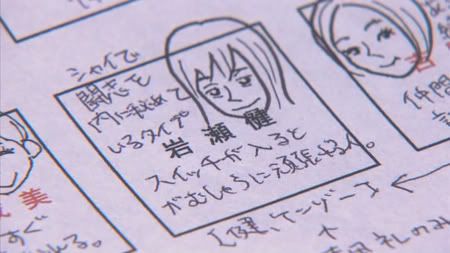 シャイで
闘志を
内に秘めて
いるタイプ
岩瀬健
スイッチが入ると
がむしゃらに頑張る人。
【健、ケンゾー】←
仲間
美
すぐ
れる。
礼のみ